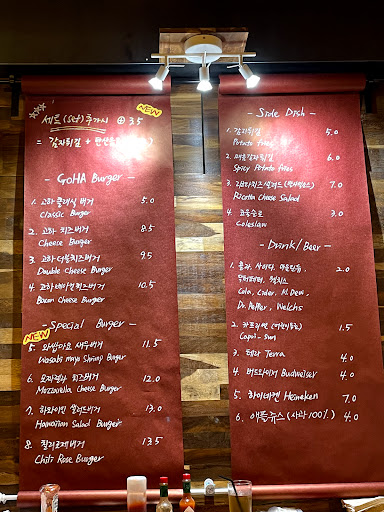 NEW
세트(Set) 추가시 ⊕ 3.5
= 감자튀김 + 탄산음료
- GOHA Burger -
1. 고하 클래식 버거 5.0
Classic Burger
2. 고하 치즈버거 8.5
Cheese Burger
3. 고하 더블치즈버거 9.5
Double Cheese Burger
4. 고하 베이컨치즈버거 10.5
Bacon Cheese Burger
- Special Burger -
NEW
5. 와사비마요 새우버거 11.5
Wasabi mayo Shrimp Burger
6. 모짜렐라 치즈버거 12.0
Mozzarella Cheese Burger
7. 하와이안 샐러드버거 13.0
Hawaiian Salad Burger
8. 칠리로제버거 13.5
Chili Rose Burger
- Side Dish -
1. 감자튀김 5.0
Potato Fries
2. 매운감자튀김 6.0
Spicy Potato Fries
3. 7.0
Ricotta Cheese Salad
4. 코울슬로 3.0
Coleslaw
- Drink / Beer -
1. 콜라, 사이다, 마운틴듀, 2.0
닥터페퍼, 웰치스
Cola, Cider, M.Dew,
Dr.Pepper, Welchs
2. 카프리썬 1.5
Capri-Sun
3. 테라 Terra 4.0
4. 버드와이저 Budweiser 4.0
5. 하이네켄 Heineken 7.0
6. 애플쥬스 (사과 100%) 4.0